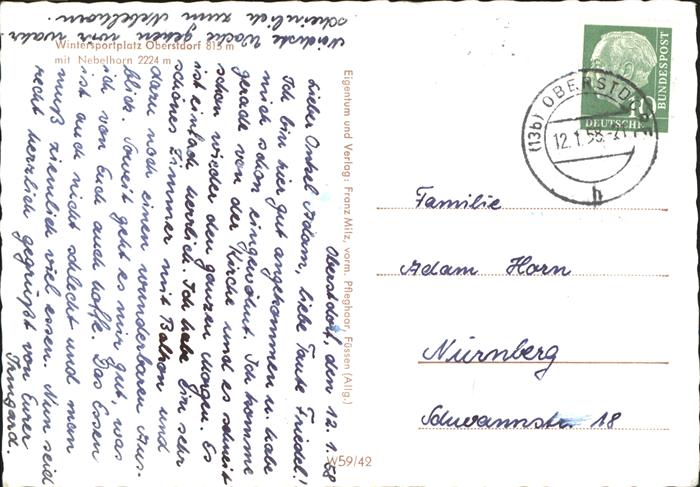 Wintersportplatz Oberstdorf 815 m
mit Nebelhorn 2224 m
Oberstdorf, den 12.1.58
Lieber Onkel Adam, liebe Tante Friedel!
Ich bin hier gut angekommen u. habe
mich schon eingewöhnt. Ich komme
gerade von der Kirche und es schneit
schon wieder den ganzen Morgen. Es
ist einfach herrlich. Ich habe ein sehr
schönes Zimmer mit Balkon und
dazu noch einen wunderbaren Aus-
blick. Soweit geht es mir gut, was
ich von Euch auch hoffe. Das Essen
ist auch nicht schlecht und man
muß ziemlich viel essen. Nun seid
recht herzlich gegrüßt von Eurer
Irmgard.
Nächste Woche gehen wir wahr-
scheinlich zum Nebelhorn.
Eigentum und Verlag: Franz Milz, vorm. Pfleghaar, Füssen (Allg.)
W59/42
DEUTSCHE
BUNDESPOST
10
(13b) OBERSTDORF
12.1.58
b
Familie
Adam Horn
Nürnberg
Schwannstr. 18